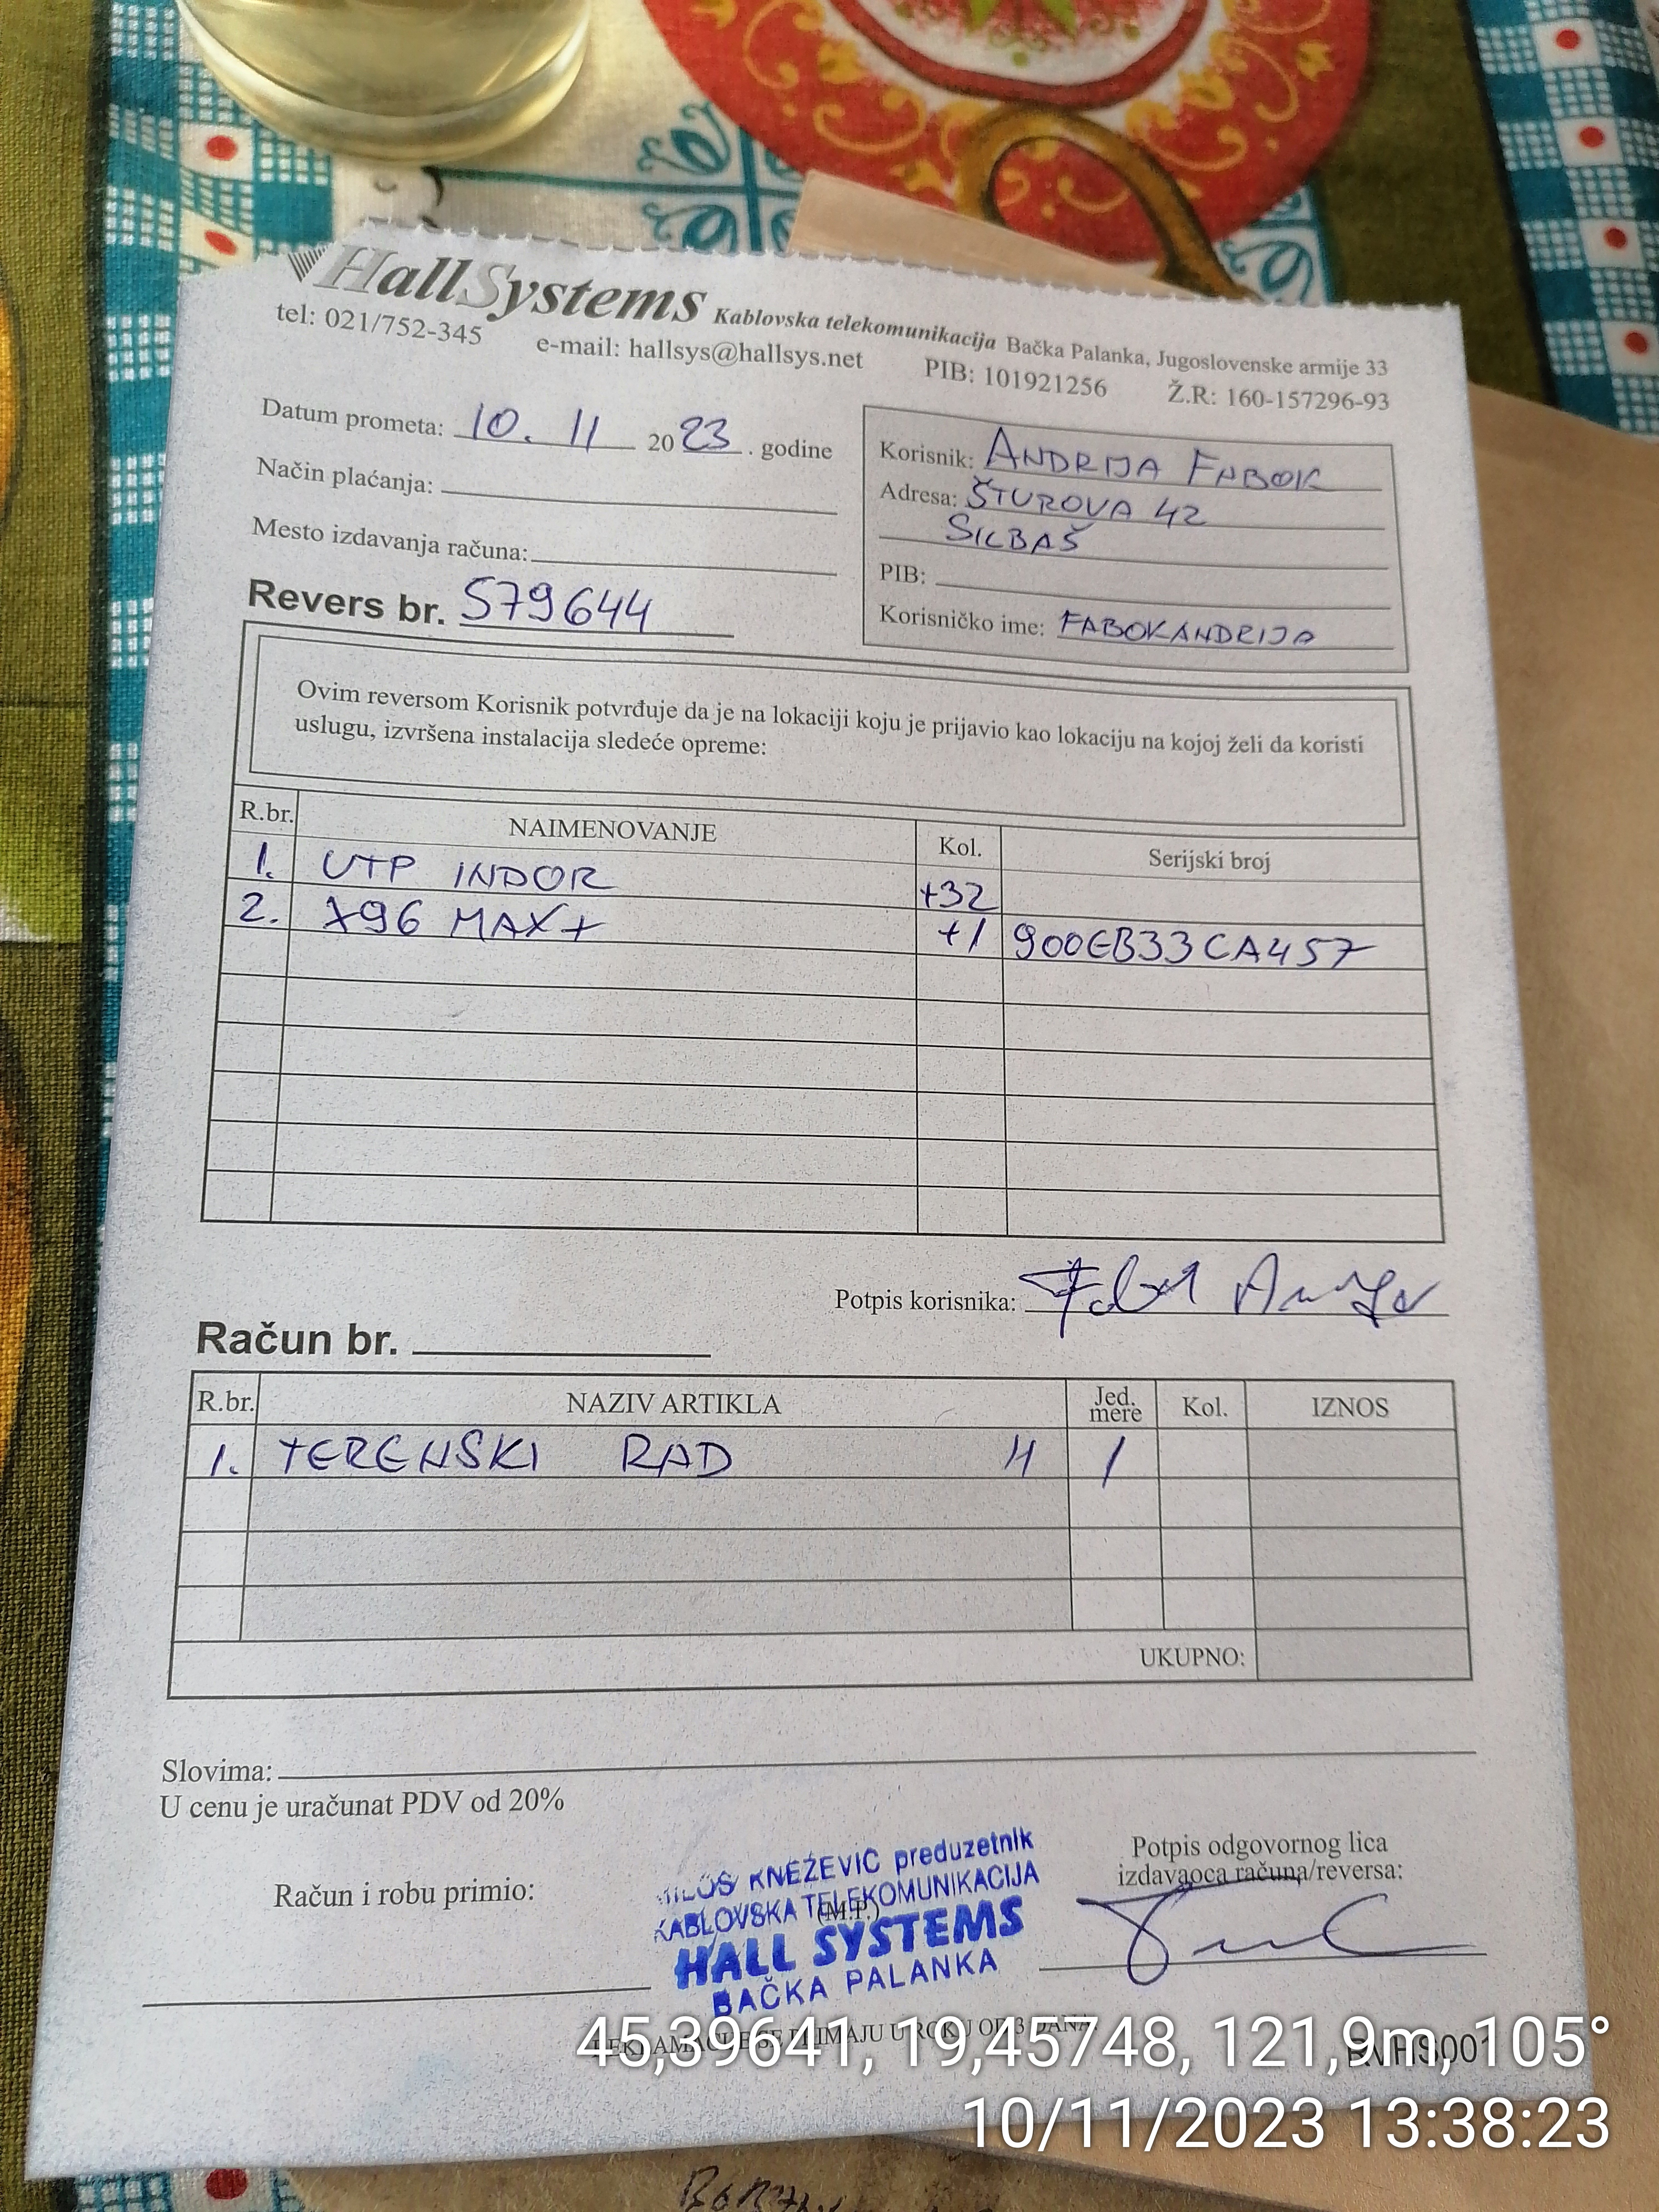 HallSystems Kablovska telekomunikacija Bačka Palanka, Jugoslovenske armije 33
tel: 021/752-345 e-mail: hallsys@hallsys.net PIB: 101921256 Ž.R: 160-157296-93
Datum prometa: 10. 11 2023. godine
Način plaćanja:
Mesto izdavanja računa:
Revers br. 579644
Korisnik: ANDRIJA FABOK
Adresa: ŠTUROVA 42
SILBAŠ
PIB:
Korisničko ime: FABOKANDRIJA
Ovim reversom Korisnik potvrđuje da je na lokaciji koju je prijavio kao lokaciju na kojoj želi da koristi
uslugu, izvršena instalacija sledeće opreme:
R.br. NAIMENOVANJE Kol. Serijski broj
1. UTP INDOR +32
2. X96 MAX+ +1 900EB33CA457
Potpis korisnika:
Račun br.
R.br. NAZIV ARTIKLA Jed. mere Kol. IZNOS
1. TERENSKI RAD H 1
UKUPNO:
Slovima:
U cenu je uračunat PDV od 20%
Račun i robu primio:
MILOŠ KNEŽEVIĆ preduzetnik
KABLOVSKA TELEKOMUNIKACIJA
(M.P.)
HALL SYSTEMS
BAČKA PALANKA
Potpis odgovornog lica
izdavaoca računa/reversa:
REKLAMACIJE SE PRIMAJU U ROKU OD 3 DANA
45,39641, 19,45748, 121,9m, 105°
10/11/2023 13:38:23